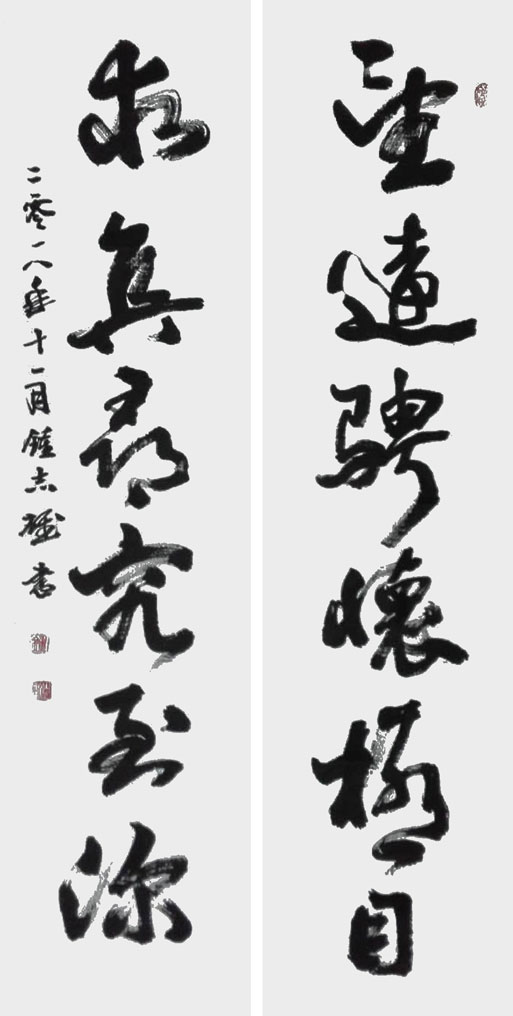 望遠騁懷極目
求真尋究至深
二零一八年十一月鍾志書